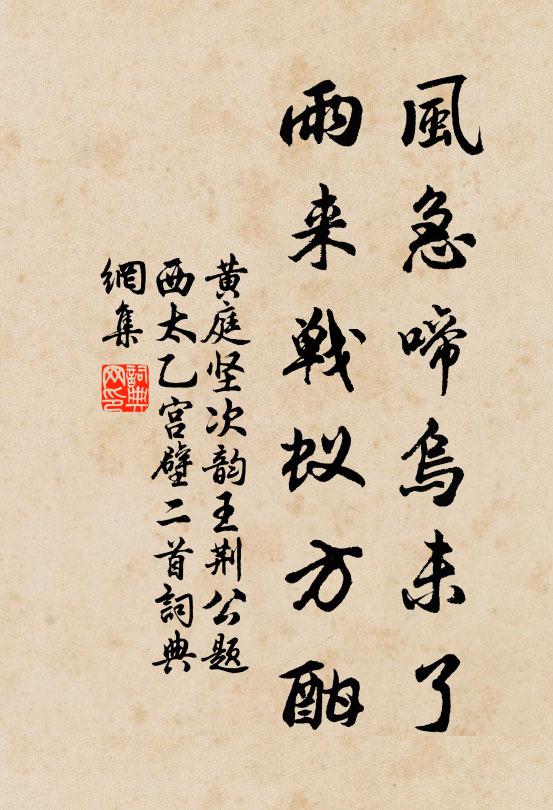 風急啼烏未了
雨来戰蚁方酣
黄庭坚次韵王荆公题
西太乙宫壁二首詞典
網集
詞典
网印